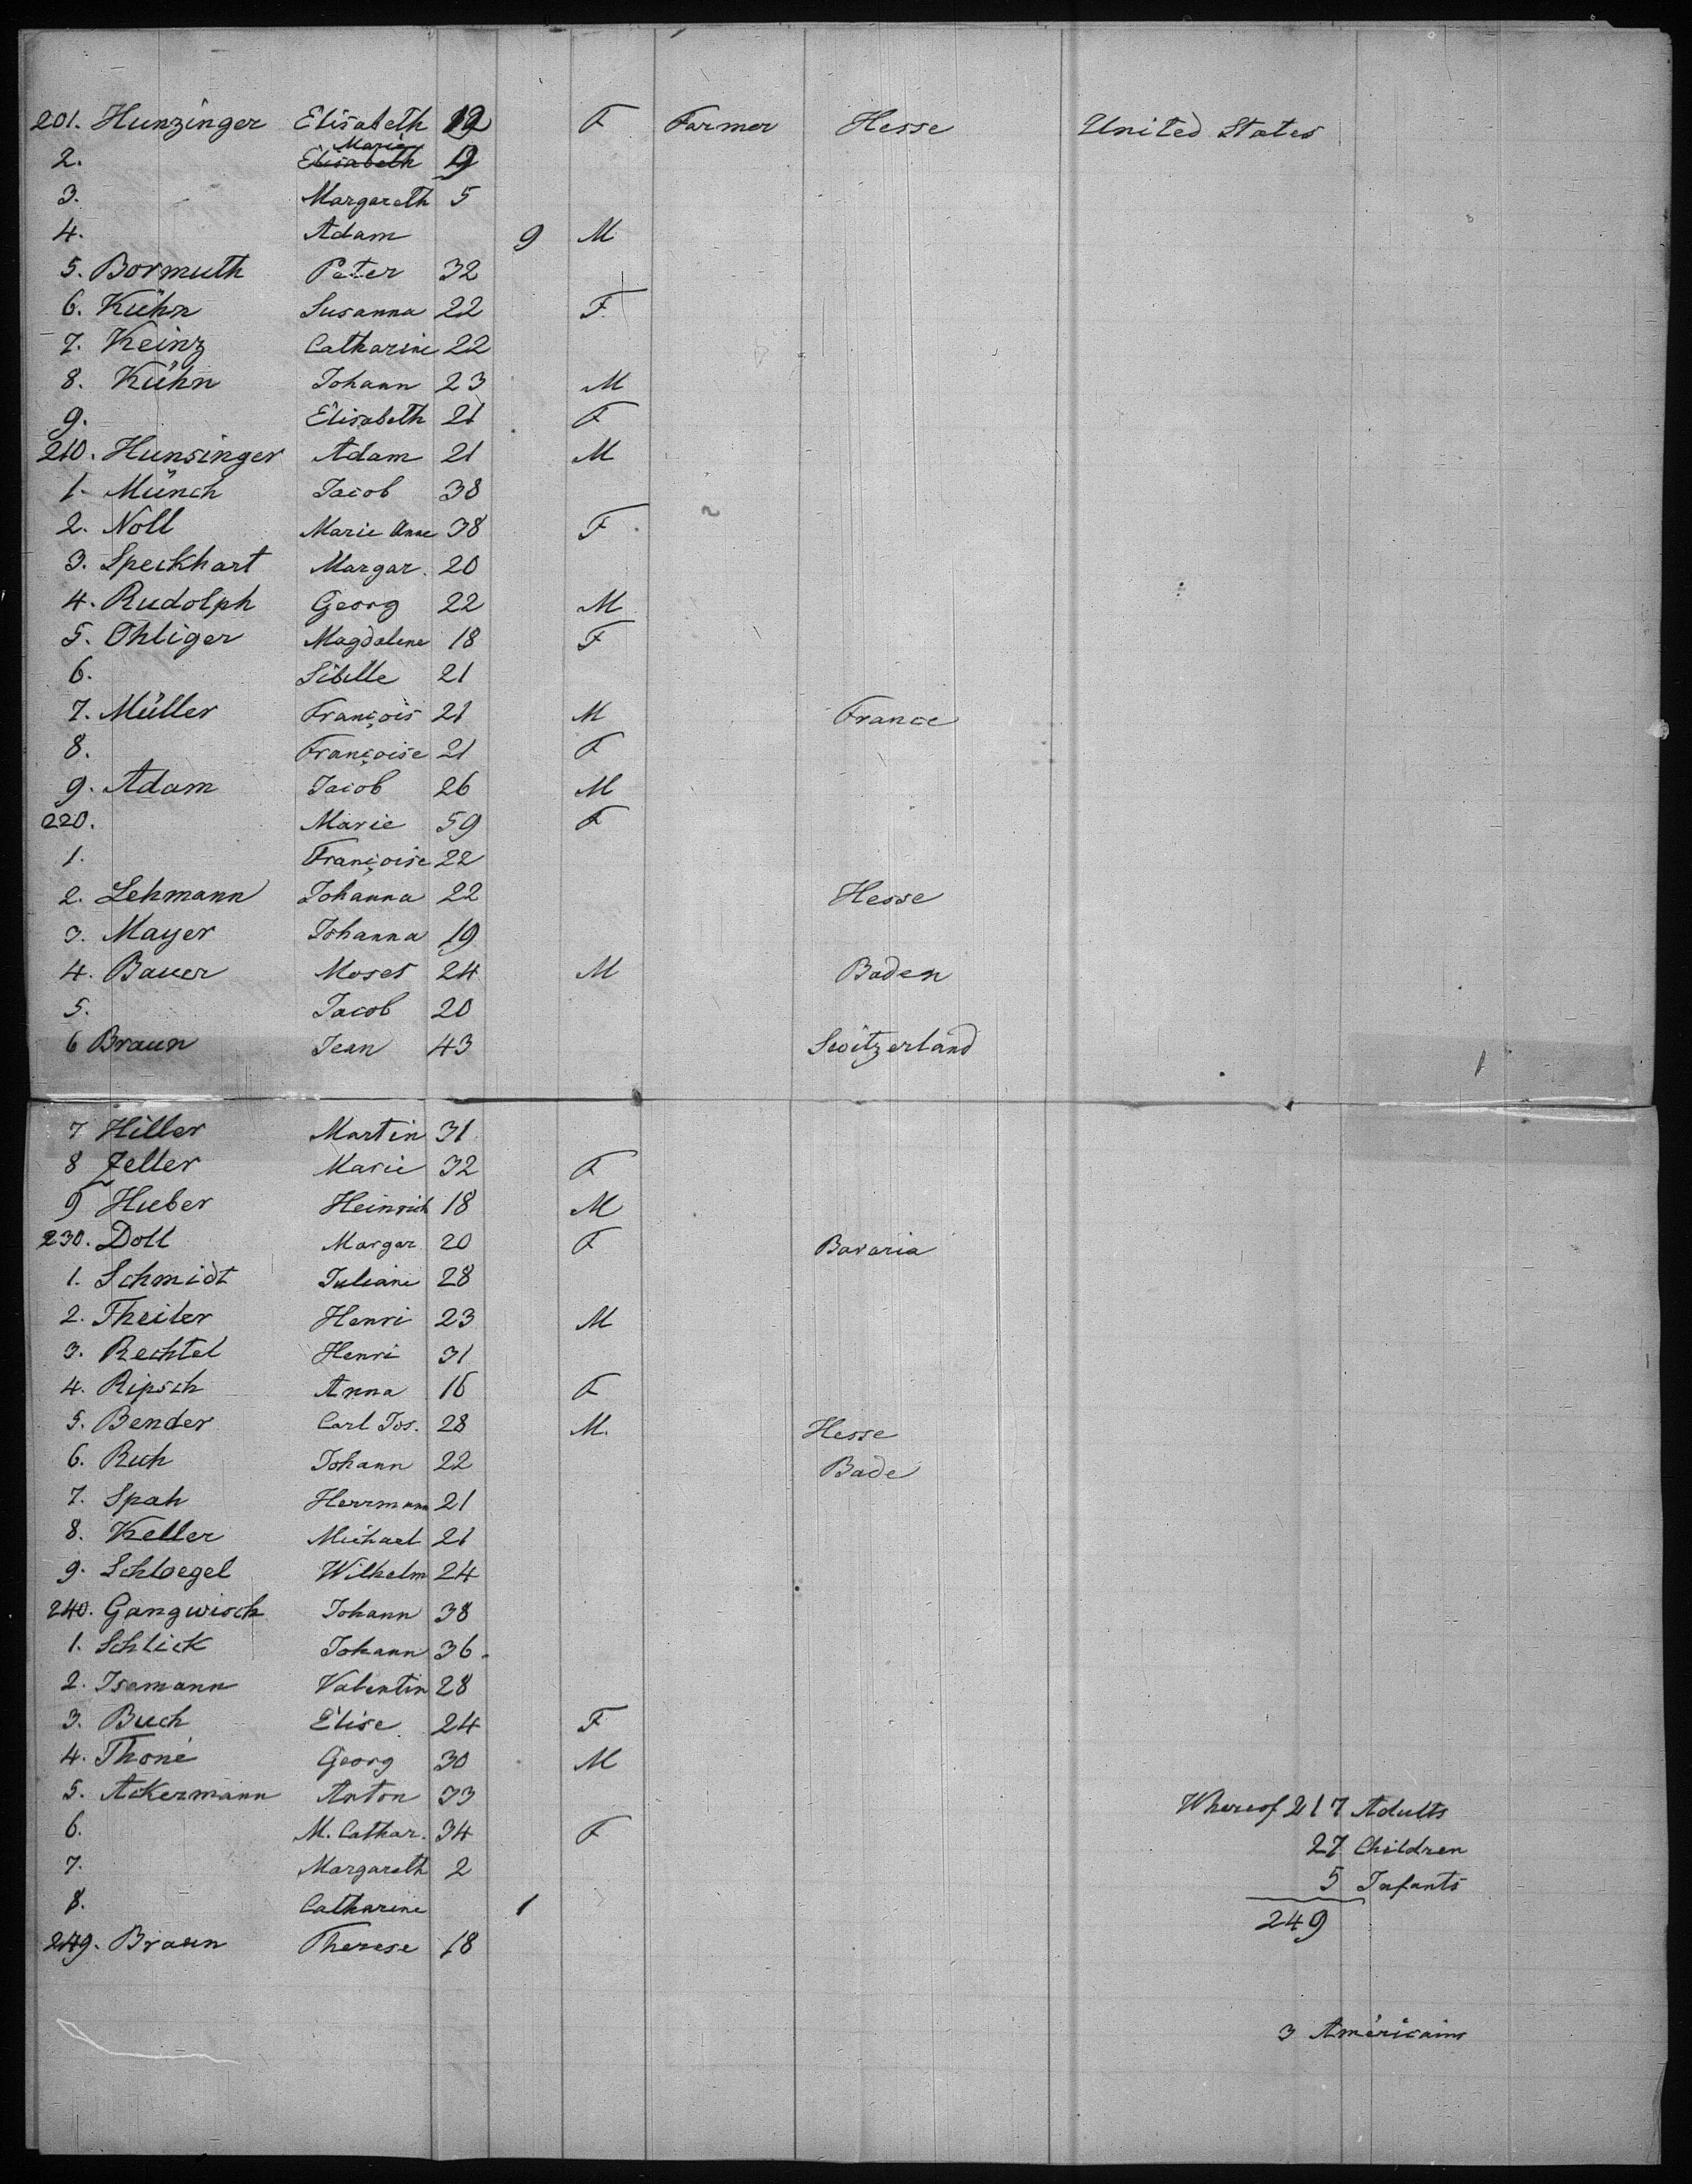 201. Hunzinger Elisabeth 12 F Farmer Hesse United States
2. Marie Elisabeth 9
3. Margareth 5
4. Adam 9 M
5. Bormuth Peter 32
6. Kühn Susanna 22 F
7. Keinz Catharine 22
8. Kühn Johann 23 M
9. Elisabeth 21 F
210. Hunsinger Adam 21 M
1. Münch Jacob 38
2. Noll Marie Anne 38 F
3. Speckhart Margar. 20
4. Rudolph Georg 22 M
5. Ohliger Magdalene 18 F
6. Sibille 21
7. Müller François 21 M France
8. Françoise 21 F
9. Adam Jacob 26 M
220. Marie 59 F
1. Françoise 22
2. Lehmann Johanna 22 Hesse
3. Mayer Johanna 19
4. Bauer Moses 24 M Baden
5. Jacob 20
6 Braun Jean 43 Switzerland 1
7 Hiller Martin 31
8 Zeller Marie 32 F
9 Huber Heinrich 18 M
230. Doll Margar. 20 F Bavaria
1. Schmidt Juliane 28
2. Theiler Henri 23 M
3. Rechtel Henri 31
4. Ripsch Anna 16 F
5. Bender Carl Jos. 28 M. Hesse
6. Ruh Johann 22 Bade
7. Spah Herrmann 21
8. Keller Michael 21
9. Schloegel Wilhelm 24
240. Gangwisch Johann 38
1. Schlick Johann 36
2. Isemann Valentin 28
3. Buch Elise 24 F
4. Thoné Georg 30 M
5. Ackermann Anton 33 Whereof 217 Adults
6. M. Cathar. 34 F 27 Children
7. Margareth 2 5 Infants
8. Catharine 1 249
249. Braun Therese 18
3 Américains